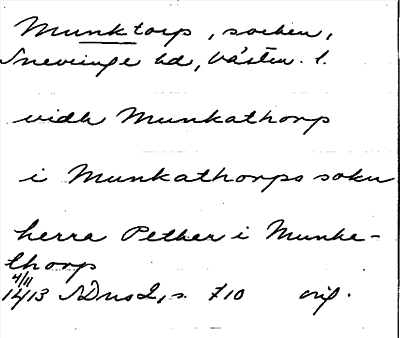 Munktorp, socken,
Snevringe hd, Västm. l.
vidh Munkathorp
i Munkathorps sokn
herra Pether i Munke-
thorp
4/11
1413 SDns 2, s. 710 orig.